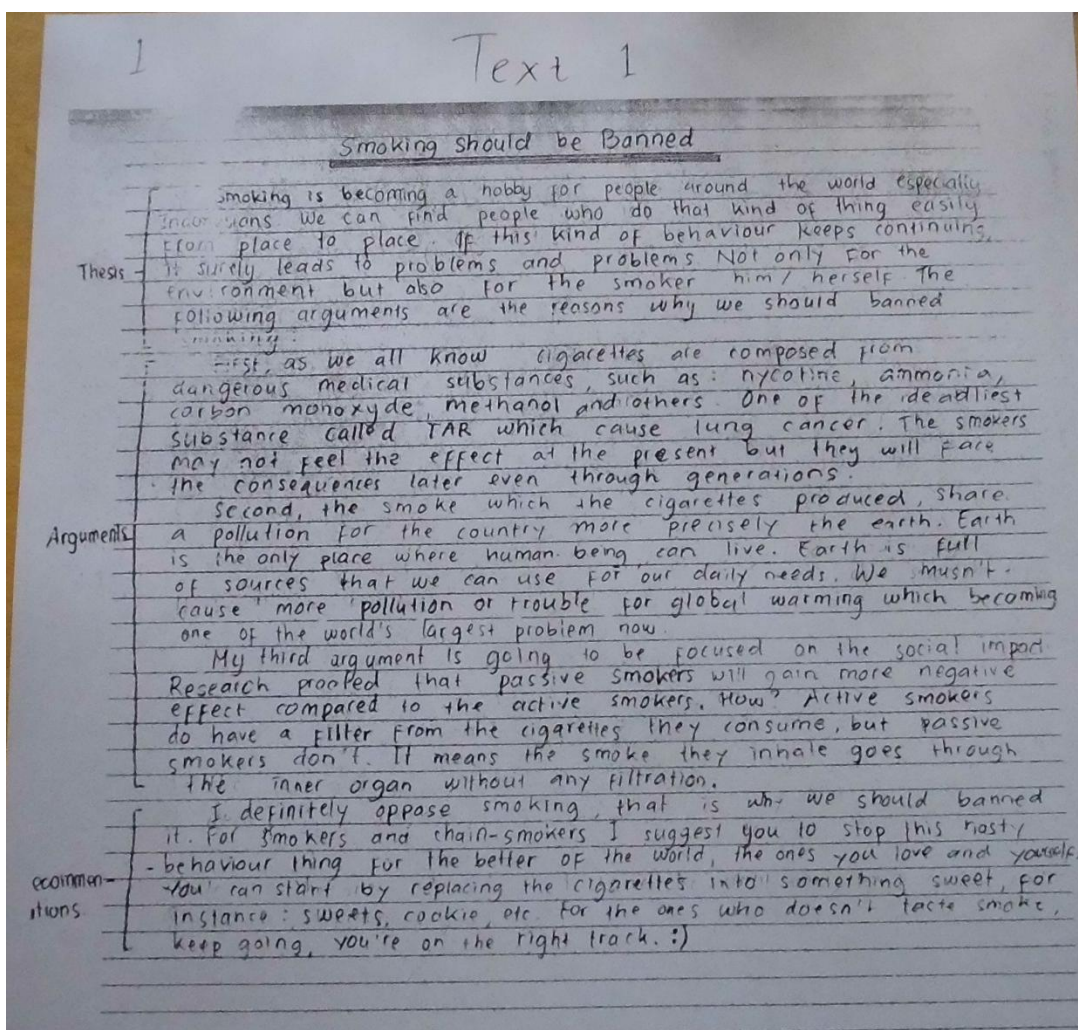 1
Text 1
Smoking should be Banned
smoking is becoming a hobby for people around the world especially
we can find people who do that kind of thing easily
from place to place. If this kind of behaviour keeps continuing,
Thesis it surely leads to problems and problems Not only for the
environment but also for the smoker him / herself The
following arguments are the reasons why we should banned
smoking.
First, as we all know cigarettes are composed from
dangerous medical substances, such as : nycotine, ammonia,
carbon monoxyde, methanol and others. One of the deadliest
substance called TAR which cause lung cancer. The smokers
may not feel the effect at the present but they will face
the consequences later even through generations.
Second, the smoke which the cigarettes produced, share
Arguments a pollution for the country more precisely the earth. Earth
is the only place where human being can live. Earth is full
of sources that we can use for our daily needs. We musn't
cause more pollution or trouble for global warming which becoming
one of the world's largest problem now.
My third argument is going to be focused on the social impact
Research proofed that passive smokers will gain more negative
effect compared to the active smokers. How? Active smokers
do have a filter from the cigarettes they consume, but passive
smokers don't. It means the smoke they inhale goes through
the inner organ without any filtration.
I definitely oppose smoking, that is why we should banned
it. For smokers and chain-smokers I suggest you to stop this nasty
behaviour thing for the better of the world, the ones you love and yourself.
ecommen- You can start by replacing the cigarettes into something sweet, for
ations instance : sweets, cookie, etc. For the ones who doesn't taste smoke,
keep going, you're on the right track. :)